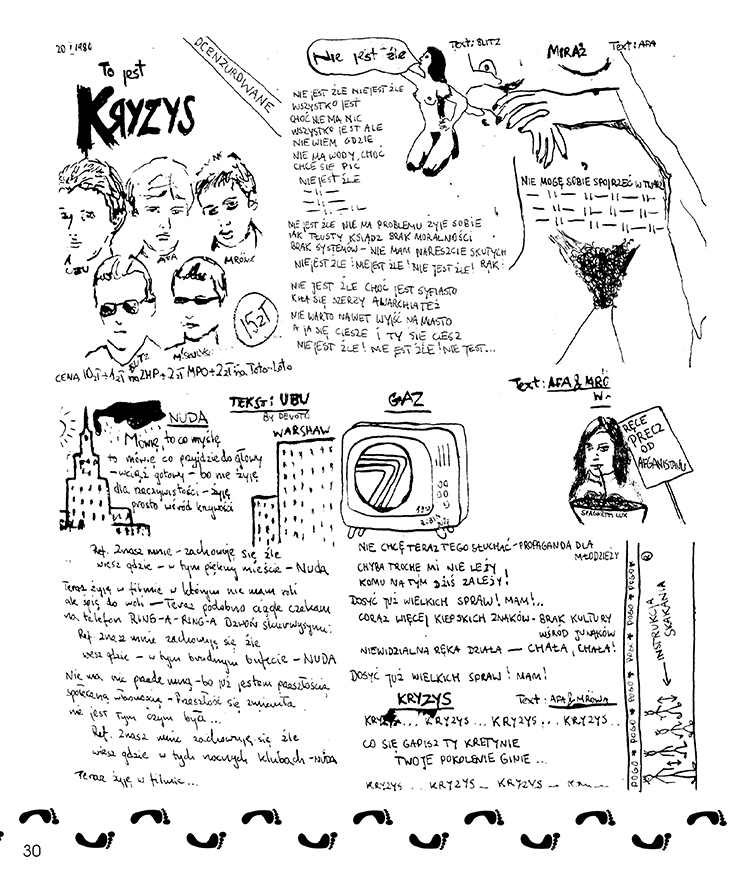 20 I 1980
To jest
KRYZYS
OCENZUROWANE
UBU
APA
MRÓW
BLITZ
15 ZŁ
CENA 10 zł + 1 zł na ZHP + 2 zł MPO + 2 zł na Toto-Loto
Nie jest źle
Text: BLITZ
NIE JEST ŹLE NIE JEST ŹLE
WSZYSTKO JEST
CHOĆ NE MA NIC
WSZYSTKO JEST ALE
NIE WIEM GDZIE
NIE MA WODY, CHOĆ
CHCE SIĘ PIĆ
NIE JEST ŹLE
NIE JEST ŹLE NIE MA PROBLEMU ŻYJĘ SOBIE
JAK TŁUSTY KSIĄDZ BRAK MORALNOŚCI
BRAK SYSTEMÓW - NIE MAM NARESZCIE SKUTYCH
NIE JEST ŹLE! NIE JEST ŹLE! NIE JEST ŹLE! RĄK!
NIE JEST ŹLE CHOĆ JEST SYFIASTO
KIŁA SIĘ SZERZY ANARCHIA TEŻ
NIE WARTO NAWET WYJŚĆ NA MIASTO
A JA SIĘ CIESZĘ I TY SIĘ CIESZ
NIE JEST ŹLE! NIE JEST ŹLE! NIE JEST...
MIRAŻ
Text: APA
NIE MOGĘ SOBIE SPOJRZEĆ W TWARZ
NUDA
TEKST: UBU
BY DEVOTO
WARSHAW
Mówię to co myślę
to mówię co przyjdzie do głowy
- wciąż gotowy - bo nie żyję
dla rzeczywistości - żyję
prosto wśród krzywości
Ref. Znasz mnie - zachowuję się źle
wiesz gdzie - w tym pięknym mieście - NUDA
Teraz żyję w filmie w którym nie mam roli
ale śpię do woli - Teraz podobno ciągle czekam
na telefon RING-A-RING-A DZWOŃ skurwysynu!
Ref. Znasz mnie zachowuję się źle
wiesz gdzie - w tym brudnym bufecie - NUDA
Nie ma nic przede mną - bo już jestem przeszłością
Przeszłość się zmieniła
nie jest tym czym była...
Ref. Znasz mnie zachowuję się źle
wiesz gdzie w tych nocnych klubach - NUDA
Teraz żyję w filmie...
GAZ
Text: APA & MRÓW
RĘCE
PRECZ
OD
AFGANISTANU
SPAGHETTI LUX
NIE CHCĘ TERAZ TEGO SŁUCHAĆ - PROPAGANDA DLA
MŁODZIEŻY
CHYBA TROCHĘ MI NIE LEŻY
KOMU NA TYM DZIŚ ZALEŻY!
DOSYĆ JUŻ WIELKICH SPRAW! MAM!..
CORAZ WIĘCEJ KIEPSKICH ZNAKÓW - BRAK KULTURY
WŚRÓD JUNAKÓW
NIEWIDZIALNA RĘKA DZIAŁA — CHAŁA, CHAŁA!
DOSYĆ JUŻ WIELKICH SPRAW! MAM!
KRYZYS
Text: APA & MRÓWA
KRYZYS... KRYZYS... KRYZYS... KRYZYS...
CO SIĘ GAPISZ TY KRETYNIE
TWOJE POKOLENIE GINIE...
KRYZYS... KRYZYS... KRYZYS
POGO * POGO * POGO * POGO * POGO * POGO
INSTRUKCJA
SKAKANIA
30